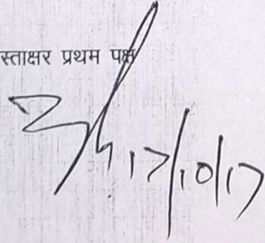 स्ताक्षर प्रथम पक्ष
17/10/17